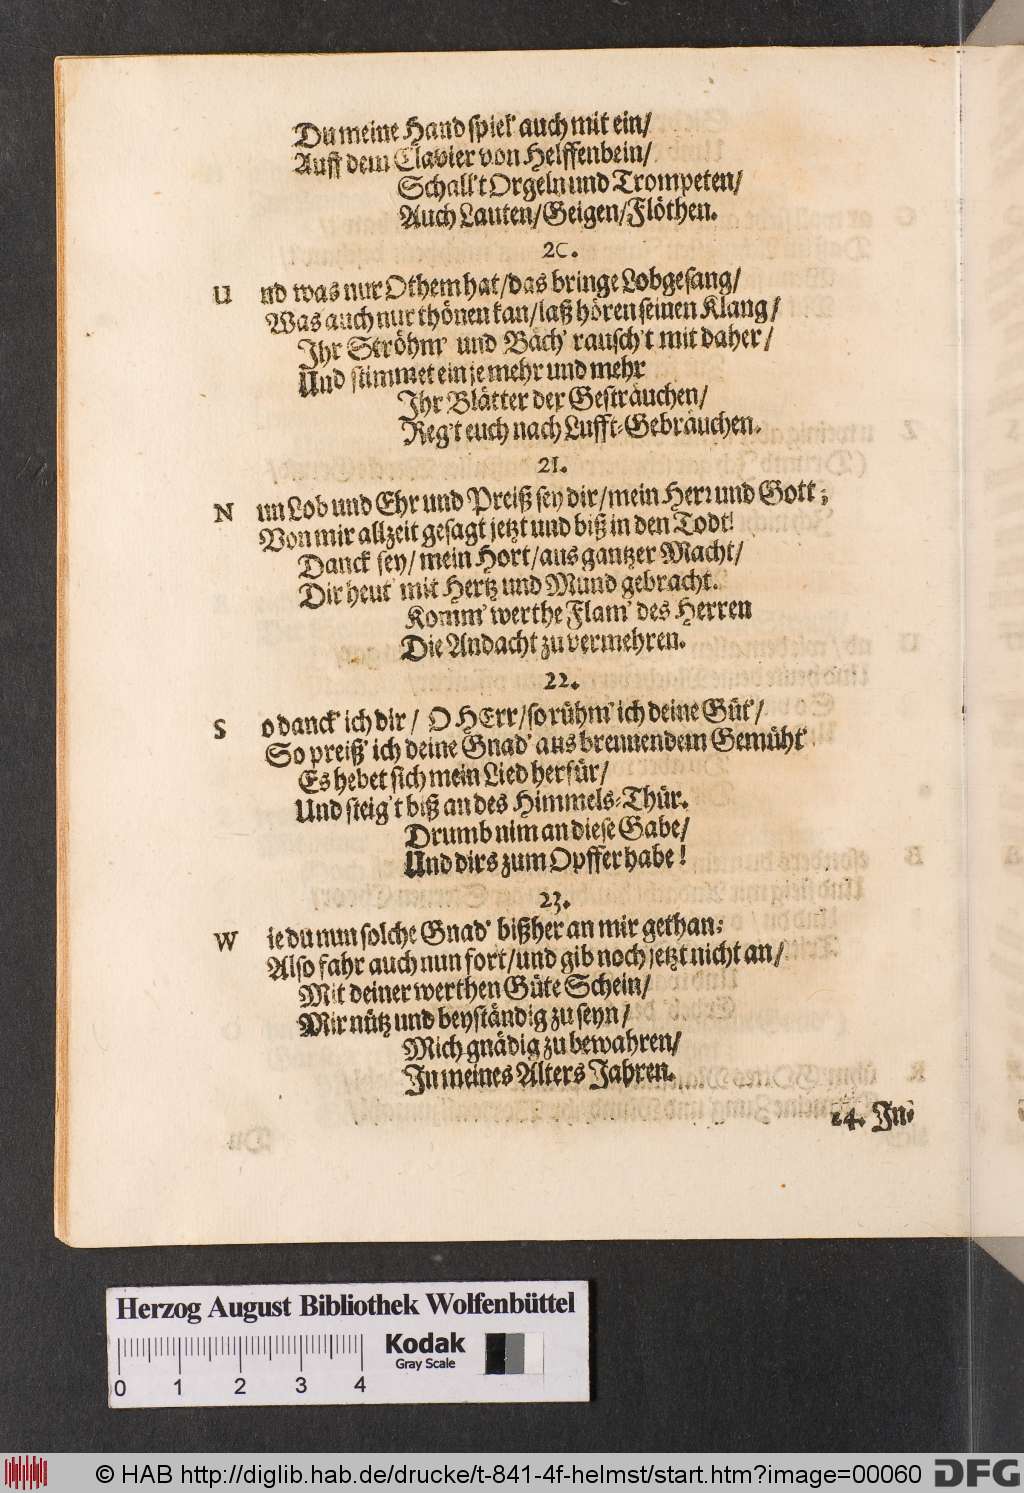 Du meine Hand spiel' auch mit ein/
Auff dem Clavier von Helffenbein/
Schall't Orgeln und Trompeten/
Auch Lauten/Geigen/Flöthen.
20.
U nd was nur Othem hat/das bringe Lobgesang/
Was auch nur thönen kan/laß hören seinen Klang/
Ihr Ströhm' und Bäch' rausch't mit daher/
Und stimmet ein je mehr und mehr
Ihr Blätter der Gesträuchen/
Reg't euch nach Lufft-Gebräuchen.
21.
N un Lob und Ehr und Preiß sey dir/mein Herr und Gott;
Von mir allzeit gesagt jetzt und biß in den Todt!
Danck sey/mein Hort/aus gantzer Macht/
Dir heut' mit Hertz und Mund gebracht.
Komm' werthe Flam' des Herren
Die Andacht zu vermehren.
22.
S o danck' ich dir/ O HErr/so rühm' ich deine Güt'/
So preiß' ich deine Gnad' aus brennendem Gemüht'
Es hebet sich mein Lied herfür/
Und steig't biß an des Himmels-Thür.
Drumb nim an diese Gabe/
Und dirs zum Opffer habe!
23.
W ie du nun solche Gnad' bißher an mir gethan;
Also fahr auch nun fort/und gib noch jetzt nicht an/
Mit deiner werthen Güte Schein/
Mir nütz und beyständig zu seyn/
Mich gnädig zu bewahren/
In meines Alters Jahren.
24. In-
Herzog August Bibliothek Wolfenbüttel
Kodak
Gray Scale
0 1 2 3 4
© HAB http://diglib.hab.de/drucke/t-841-4f-helmst/start.htm?image=00060
DFG